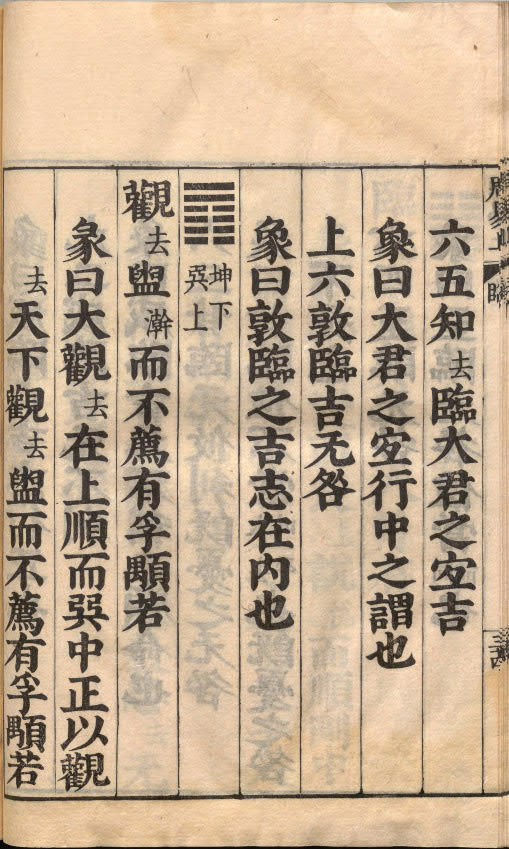 周易上 臨
六五知去臨大君之宐吉
象曰大君之宐行中之謂也
上六敦臨吉无咎
象曰敦臨之吉志在内也
䷓坤下巽上
觀去盥瀚而不薦有孚顒若
彖曰大觀去在上順而巽中正以觀
去天下觀去盥而不薦有孚顒若